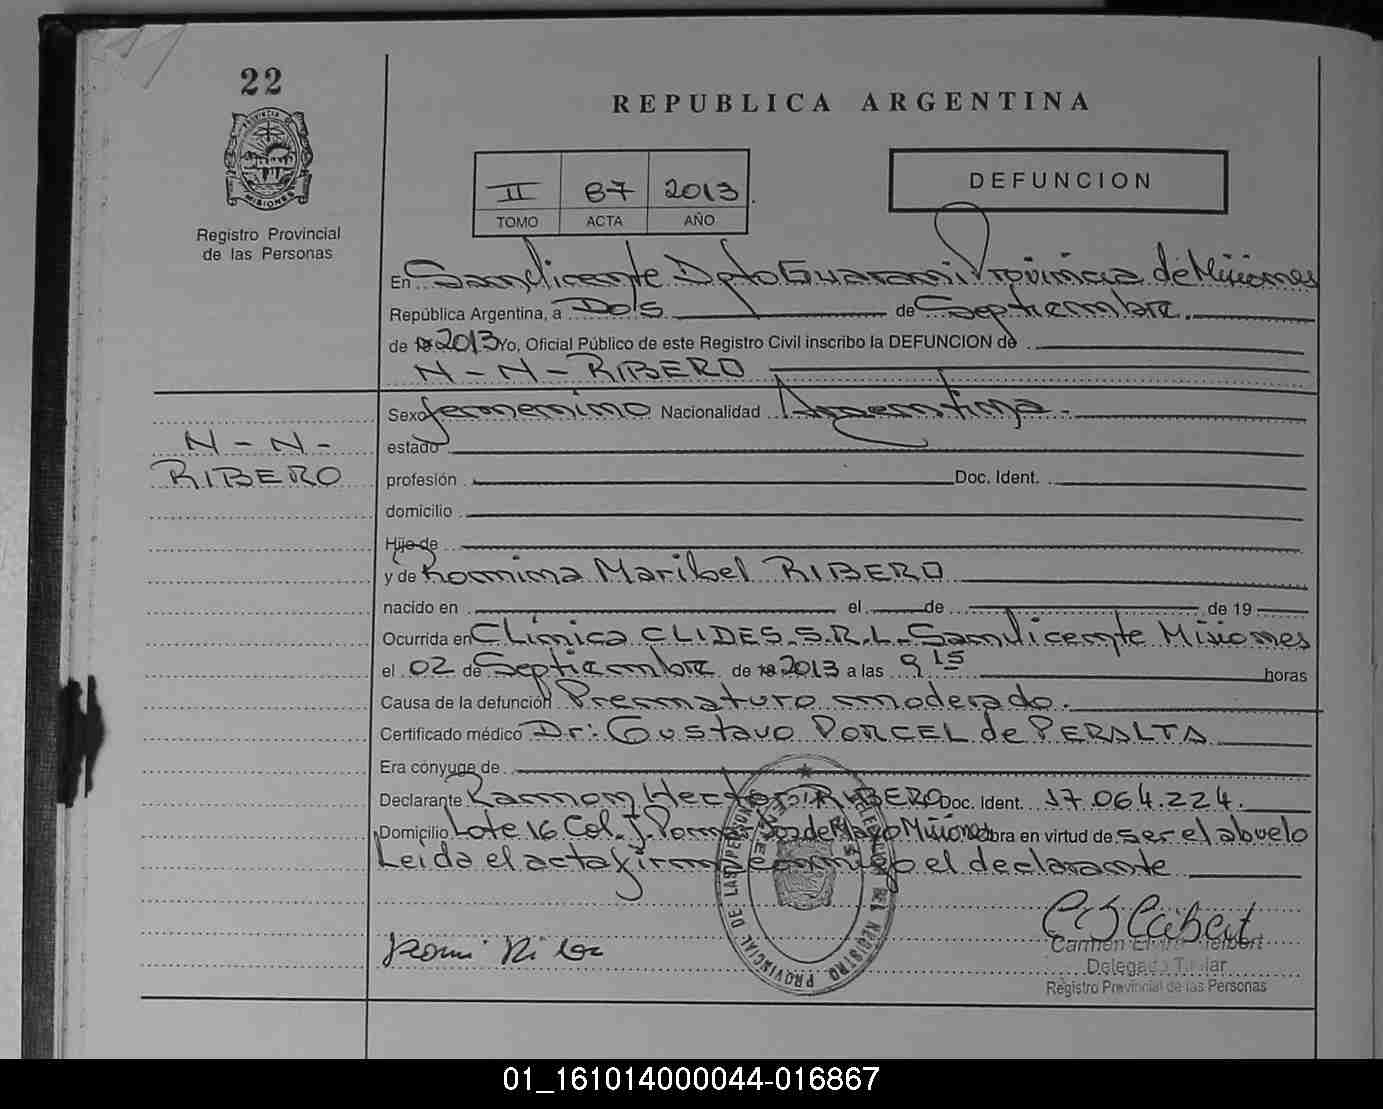 22
REPUBLICA ARGENTINA
PROVINCIA DE
MISIONES
Registro Provincial
de las Personas
II 87 2013.
TOMO ACTA AÑO
DEFUNCION
En San Vicente Dpto Guarani Provincia de Misiones
República Argentina, a Dos de Septiembre.
de 2013 Yo, Oficial Público de este Registro Civil inscribo la DEFUNCION de
N-N-RIBERO
N-N-
RIBERO
Sexo femenino Nacionalidad Argentina.
estado
profesión Doc. Ident.
domicilio
Hijo de
y de Romina Maribel RIBERO
nacido en el de de 19
Ocurrida en Clinica CLIDES. S.R.L. San Vicente Misiones
el 02 de Septiembre de 2013 a las 9 15 horas
Causa de la defunción Prematuro moderado.
Certificado médico Dr: Gustavo PORCEL de PERALTA
Era cónyuge de
Declarante Ramon Hector RIBERO Doc. Ident. 17.064.224.
Domicilio Lote 16 Col. Dos de Mayo Misiones obra en virtud de ser el abuelo
Leida el acta firma conmigo el declarante
REGISTRO PROVINCIAL DE LAS PERSONAS
Carmen
Delegada Titular
Registro Provincial de las Personas
01_161014000044-016867